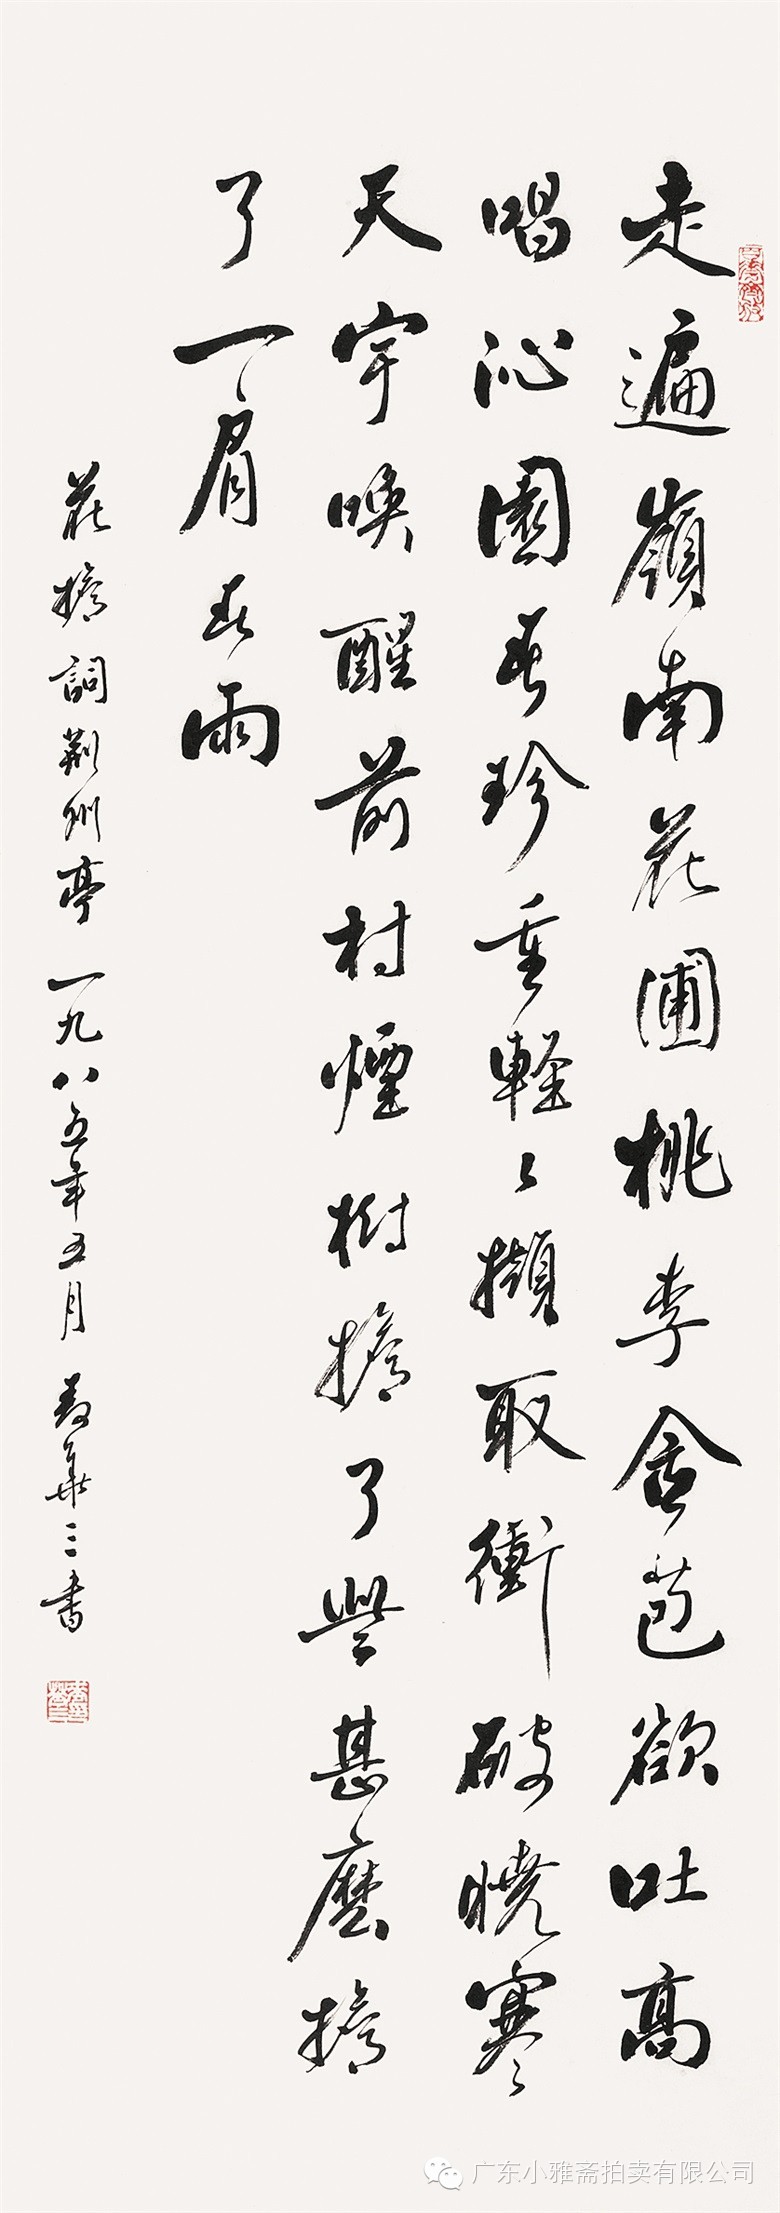 走遍嶺南花圃桃李含苞欲吐高
唱沁園春珍重輕々擷取衝破曉寒
天宇喚醒前村煙樹擔了些甚麼擔
了一肩春雨
花擔詞荊州亭一九八五年五月 麥華三書
广东小雅斋拍卖有限公司